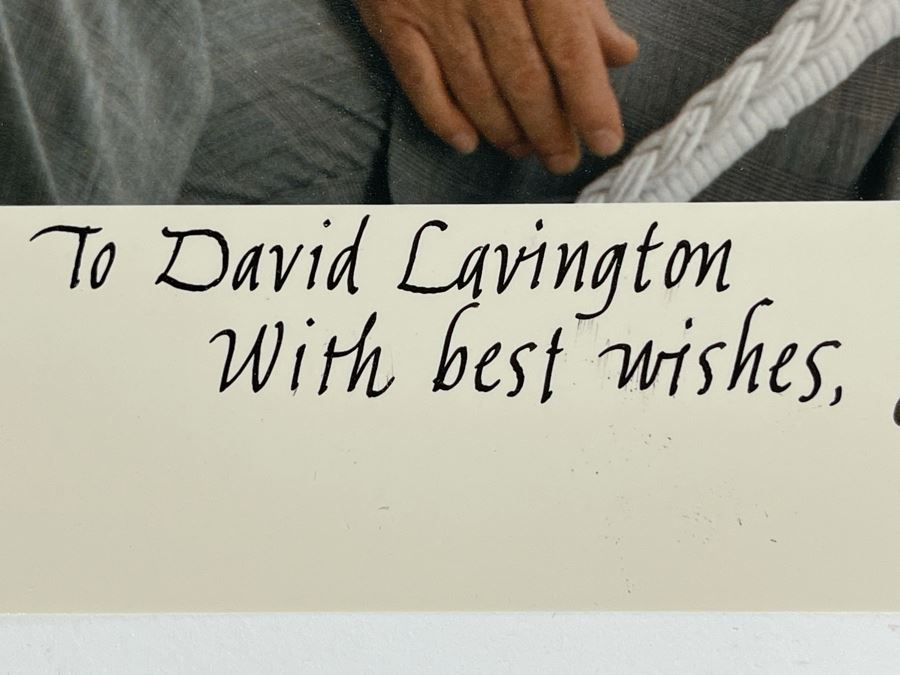 To David Lavington
With best wishes,